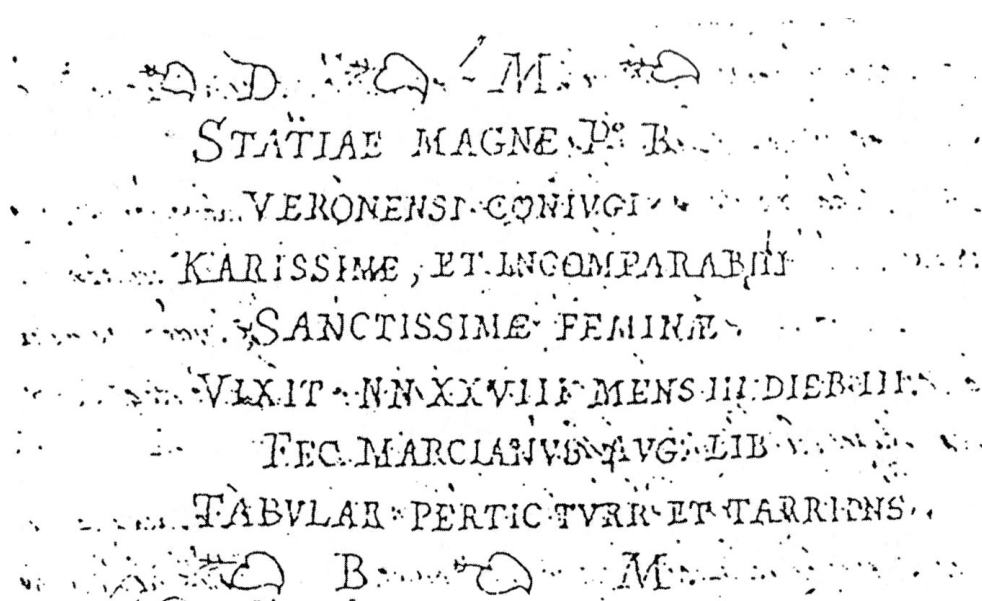 D. M.
STATIAE MAGNÆ P° R
VERONENSI CONIVGI
KARISSIMÆ, ET INCOMPARABILI
SANCTISSIMÆ FEMINÆ
VIXIT NN XXVIII MENS III DIEB III
FEC MARCIANVS AVG LIB
TABVLAR PERTIC TVRR ET TARRIONS
B M